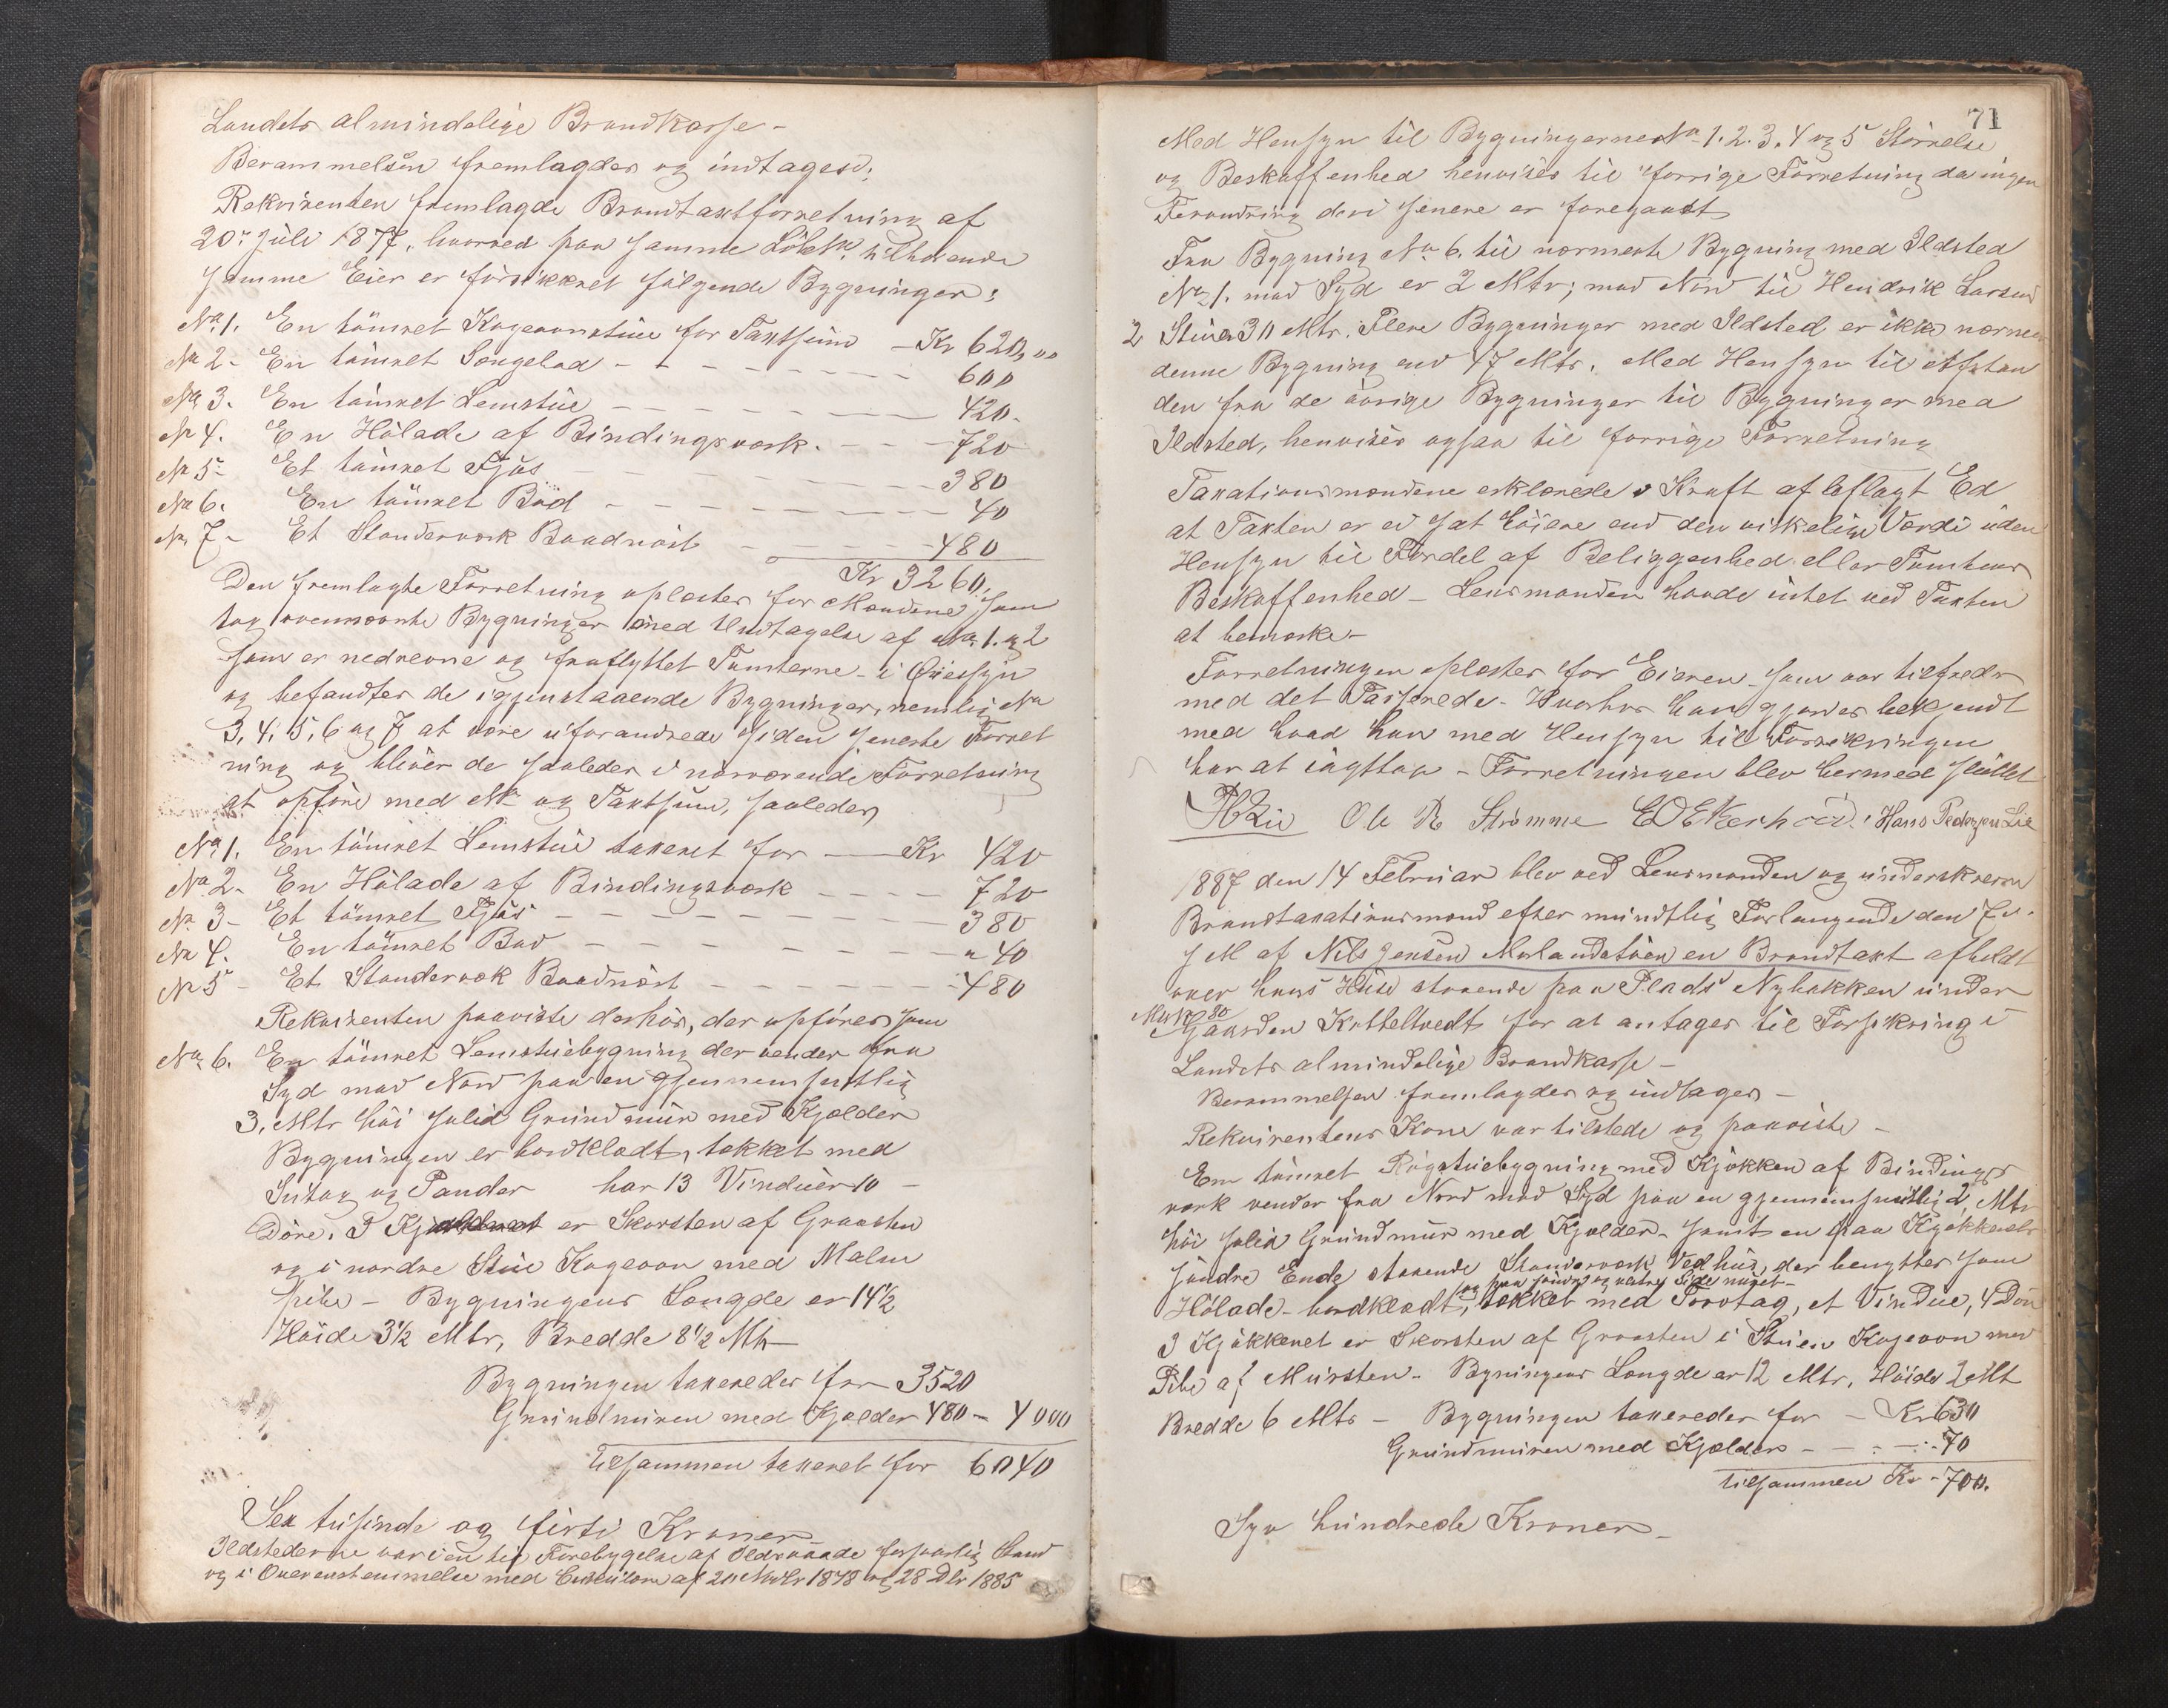 Landets almindelige Brandkasse -
Berammelsen fremlagdes og indtages;
Rekvirenten fremlagde Brandtaxtforretning af
20de Juli 1877, hvorved paa samme Löbek. tilhörende
samme Eier er forsikkret følgende Bygninger:
No 1. En tömret Kogeovnstue for Taxtsum - Kr 620,00
No 2 - En tömret Sengebod - - - - 600
No 3. En tömret Lemstue - - - - 420 -
No 4. En Hölade af Bindingsværk. - - - 720
No 5 - Et tömret Fjös - - - - 380
No 6. En tömret Bod - - - - 40
No 7 - Et Standerværk Baadnöst - - - - 480
Kr 3260.
Den fremlagte Forretning oplæstes for Mændene som
tog ovennævnte Bygninger med Undtagelse af No 1. og 2
som er nedrevne og fraflyttet Tomterne - i Öiesyn
og befandtes de igjenstaaende Bygninger, nemlig No
3, 4, 5, 6 og 7 at være uforandrede siden seneste Forret
ning og bliver de saaledes i nærværende Forretning
at opföre med No og Taxtsum, saaledes
No 1. En tömret Lemstue taxeret for - Kr 420
No 2 - En Hölade af Bindingsværk - - - - 720
No 3 - Et tömret Fjös - - - - 380
No 4. En tömret Bod - - - - " 40
No 5 - Et Standerværk Baadnöst - - - - 480
Rekvirenten paaviste deshos, der opföres som
No 6. En tömret Lemstuebygning der vender fra
Syd mod Nord paa en gjennemsnitlig
3, Mtr höi solid Grundmur med Kjælder
Bygningen er bordklædt, tækket med
Sutag og Pander har 13 Vinduer 10 -
Döre. I er Skorsten af Graasten
og i nordre Stue Kogeovn med Malm
pibe - Bygningens Længde er 14½
Höide 3½ Mtr, Bredde 8½ Mtr
Bygningen taxeredes for 3520
Grundmuren med Kjælder 480 - 4000
tilsammen taxeret for 6040
Sex tusinde og firti Kroner
Ildstederne var i en til Forebygelse af Ildsvaade forsvarlig Stand
og i Overenstemmelse med Cirkulære af 20 Novbr 1878 og 28 Dbr 1885
71
Med Hensyn til Bygningernes No 1. 2. 3. 4 og 5 Störrelse
og Beskaffenhed henvises til forrige Forretning da ingen
Forandring deri senere er foregaaet
Fra Bygning No 6. til nærmeste Bygning med Ildsted
No 1. mod Syd er 2 Mtr; mod Nord til Hendrik Larsens
2 Stuer 30 Mtr. Flere Bygninger med Ildsted er ikke nærmere
denne Bygning end 47 Mtr. Med Hensyn til Afstan
den fra de övrige Bygninger til Bygninger med
Ildsted, henvises ogsaa til forrige Forretning
Taxationsmændene erklærede i Kraft af aflagt Ed
at Taxten er ei sat höiere end den virkelige Værdi uden
Hensyn til Fordel af Beliggenhed eller Tomtens
Beskaffenhed - Lensmanden havde intet ved Taxten
at bemærke -
Forretningen oplæstes for Eieren - som var tilfreds
med det Passerede - Hvorhos han gjordes bekjendt
med hvad han med Hensyn til Forsikringen
har at iagttage - Forretningen blev hermed sluttet
Lie Ole R Strömme Hans Pedersen Lie
1887 den 14 Februar blev ved Lensmanden og underskrevne
Brandtaxationsmænd efter mundtlig Forlangende den 7de
s M af Nils Jensen en Brandtaxt afholdt
over hans Huse staaende paa Plads Nybakken under
Mtr No 80
Gaarden for at antages til Forsikring i
Landets almindelige Brandkasse -
Berammelsen fremlagdes og indtages -
Rekvirentens Kone var tilstede og paaviste -
En tömret Rögstuebygning med Kjökken af Bindings
værk vender fra Nord mod Syd paa en gjennemsnitlig 2, Mtr
höi solid Grundmur med Kjælder - samt en paa Kjøkkenets
söndre Ende staaende Standerværk Vedhus, der benyttes som
og paa söndre og vestre Side muret -
Hölade - bordklædt, tækket med Torvtag, et Vindue, 4 Döre
I Kjökkenet er Skorsten af Graasten i Stuen Kogeovn med
Pibe af Mursten - Bygningens Længde er 12 Mtr, Höide 2 Mt
Bredde 6 Mtr - Bygningen taxeredes for - Kr 630
Grundmuren med Kjælder - - - - 70
tilsammen Kr - 700.
Syv hundrede Kroner -